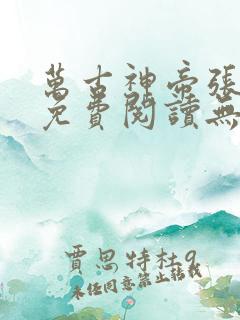 萬古神帝張
免費閱讀無
賈思特杜9
未經同意禁止轉載